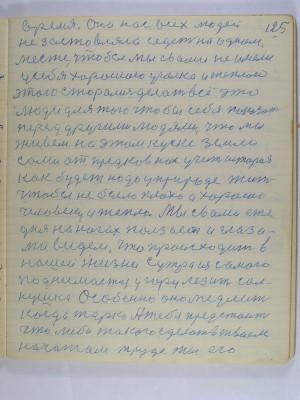 125
время. Она нас всех людей
не заставляла сидеть на одном,
месте, чтобы мы с вами не имели
у себя хорошого уголка и теплого
этого старались делать всё это
люди для того чтобы себя показать
перед другими людями, что мы
живем на этом куске земли
сами от предков нас учит история
как будет надо у природе жить
чтобы не было плохо а хорошо
человеку и тепло. Мы с вами еже
дня на ногах ползаем и глаза-
ми видем, что происходит в
нашей жизни С утра и самого
поднимается у гору лезит сол-
нушка Особенно оно медлит
когда жарко А тебе предстоит
что либо такого сделать твоем
начатом труде ты его